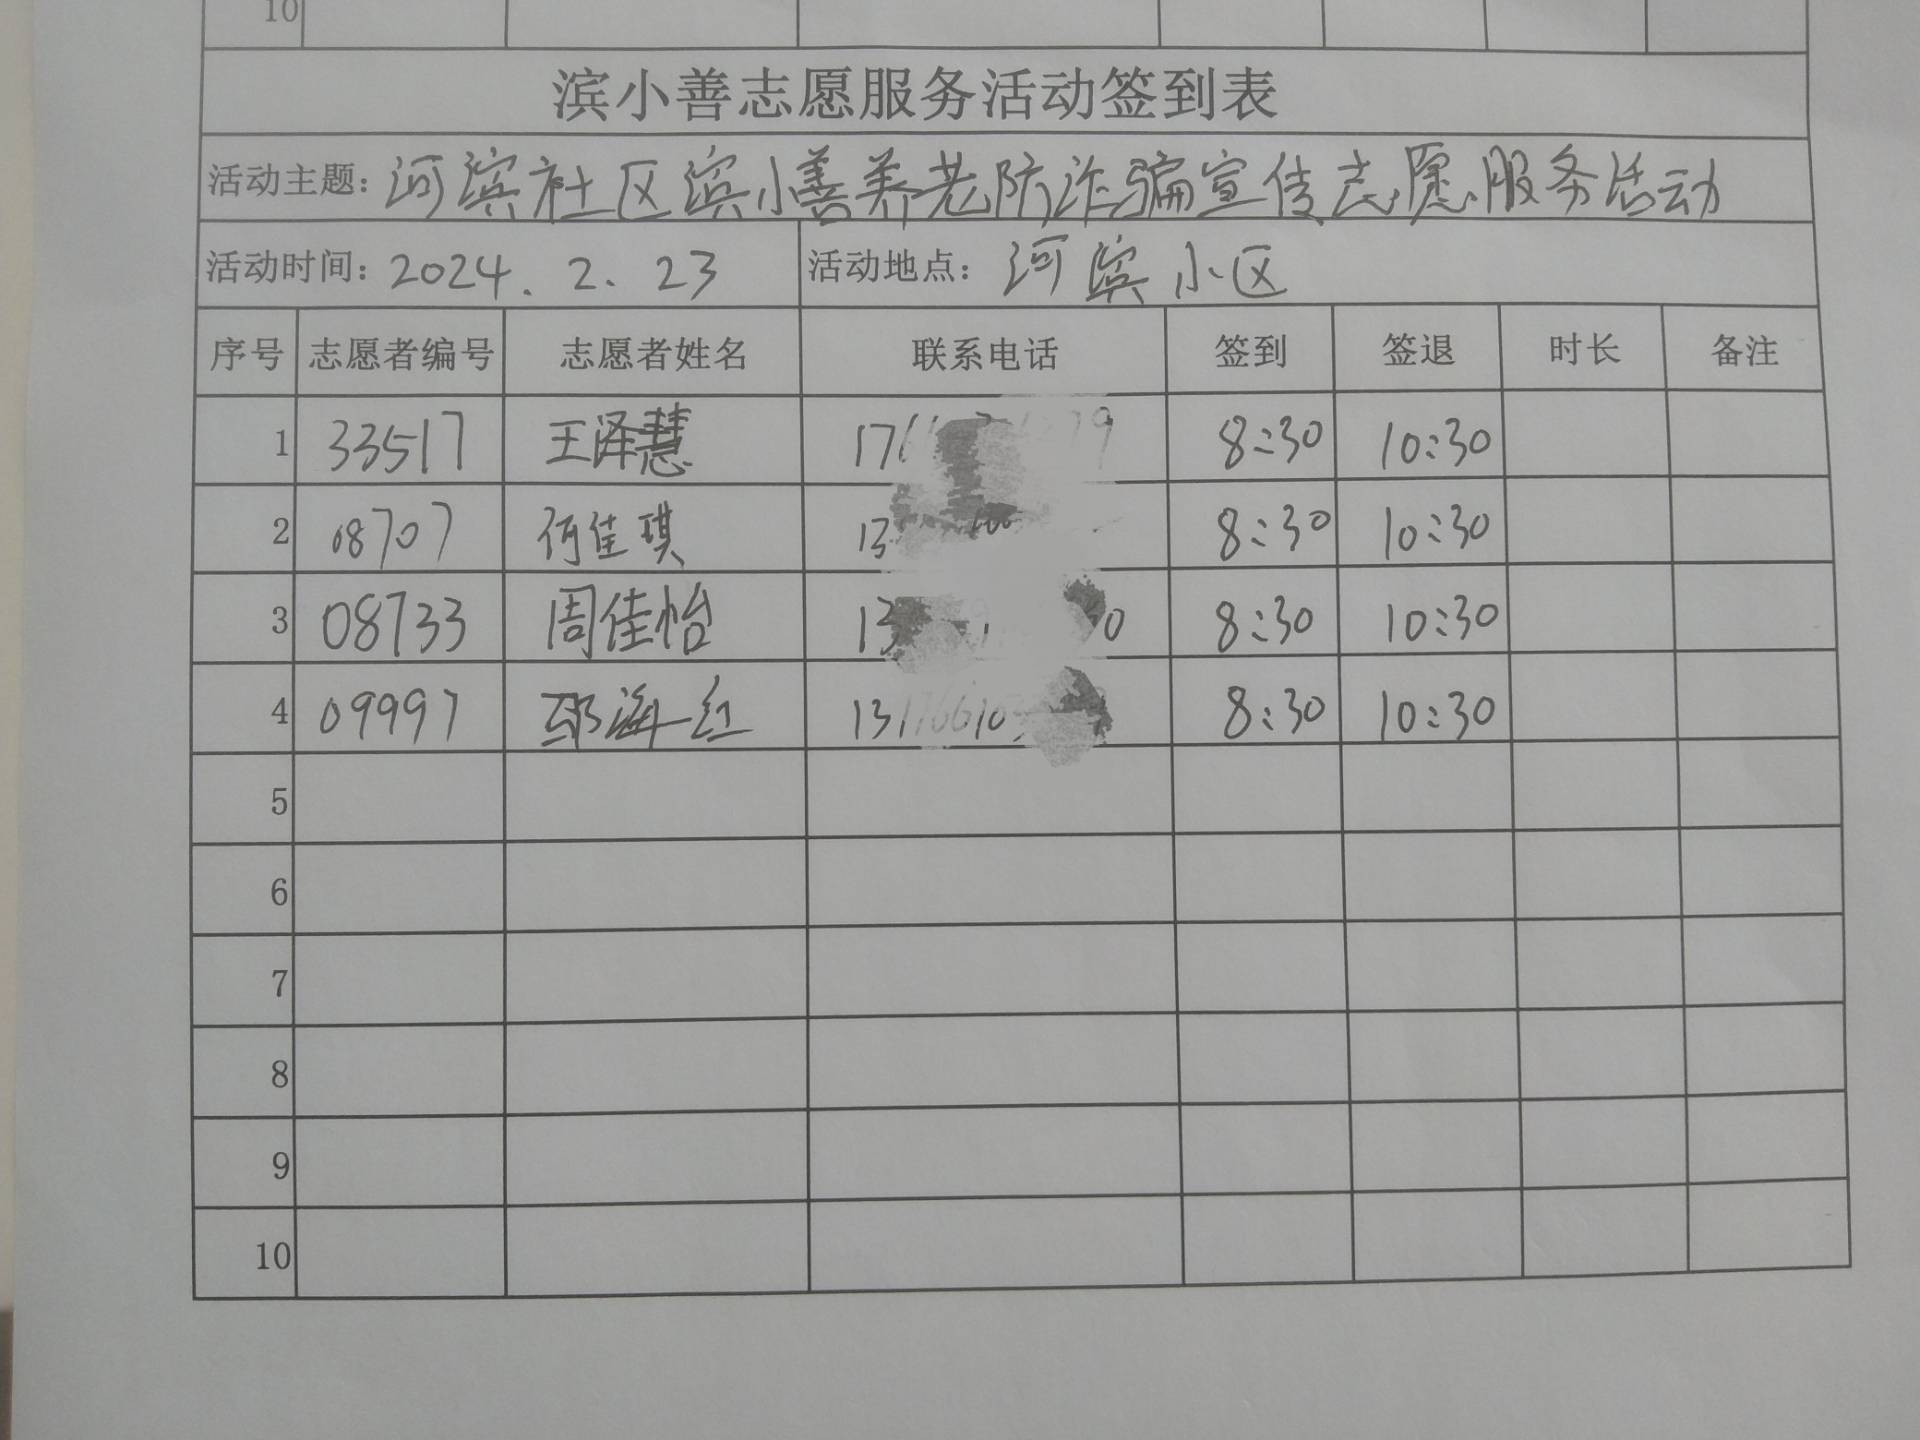 10
滨小善志愿服务活动签到表
活动主题：河滨社区滨小善养老防诈骗宣传志愿服务活动
活动时间：2024.2.23 活动地点：河滨小区
序号 志愿者编号 志愿者姓名 联系电话 签到 签退 时长 备注
1 33517 王泽慧 8:30 10:30
2 08707 何佳琪 8:30 10:30
3 08733 周佳怡 8:30 10:30
4 09997 海红 8:30 10:30
5
6
7
8
9
10